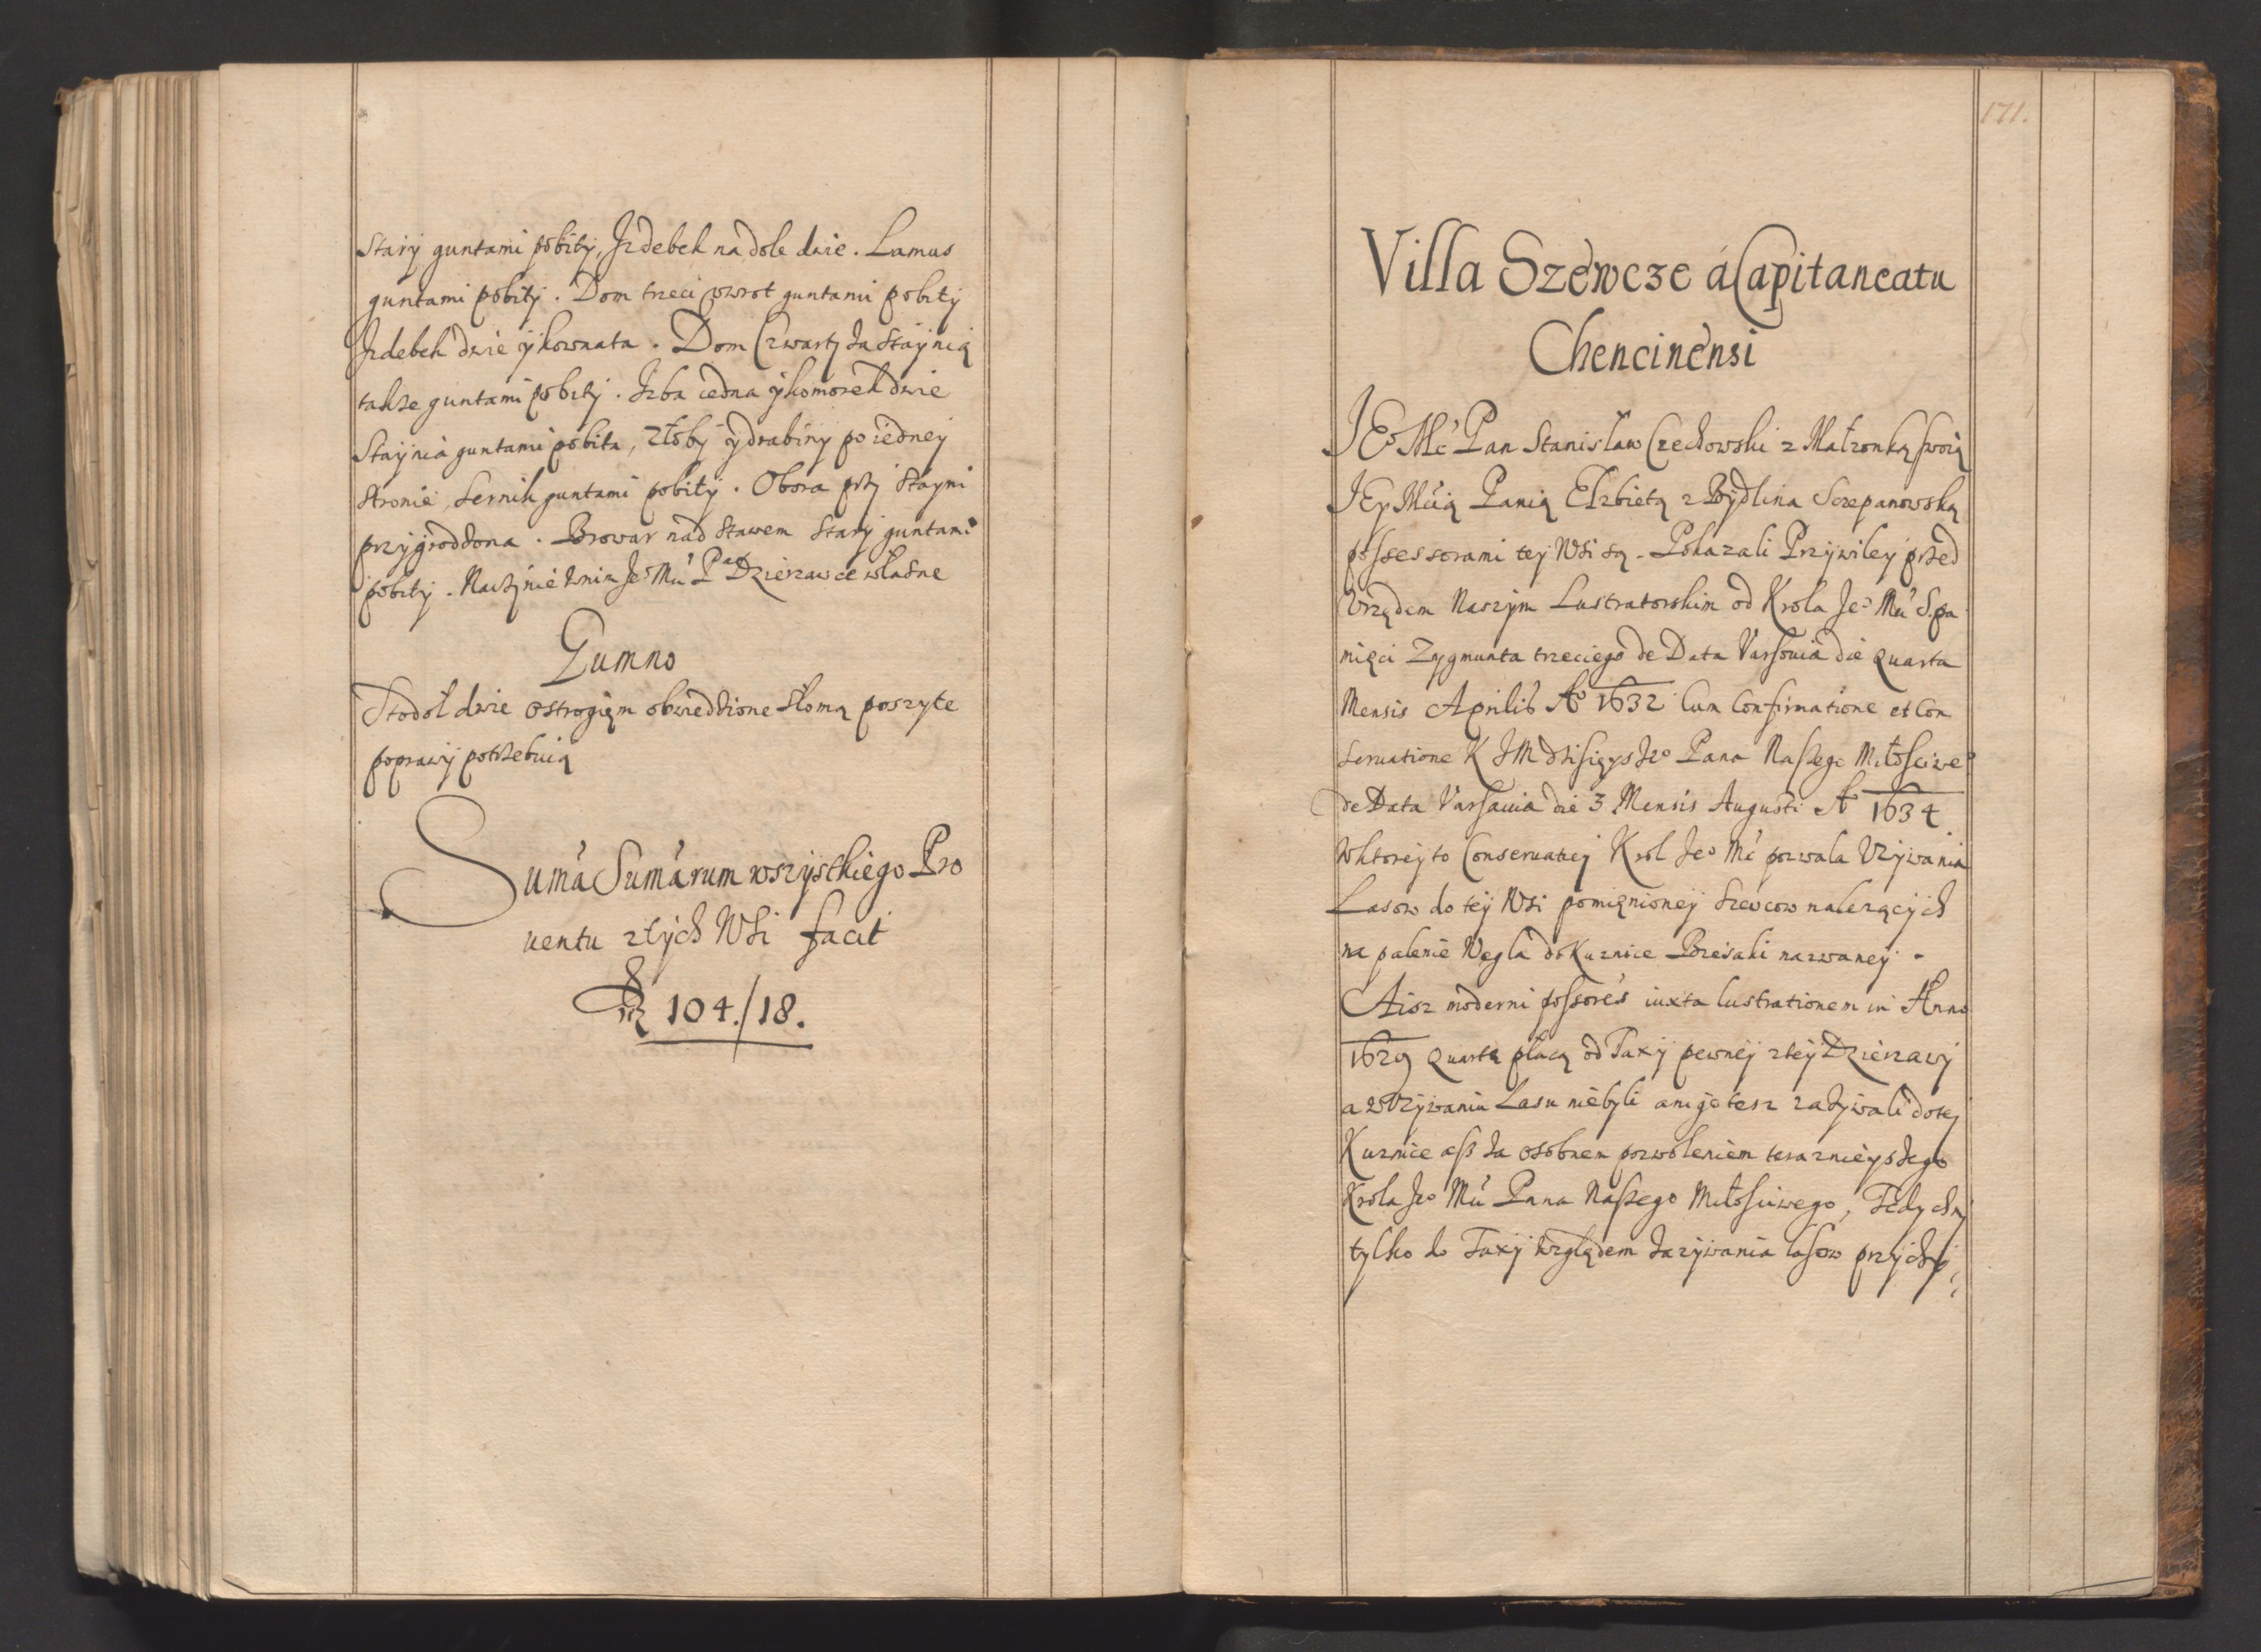 Stary guntami pobity, Izdebek na dole dwie. Lamus
guntami pobity. Dom trzeci wwrot guntami pobity
Izdebek dwie y komnata. Dom Czwarty za Staynią
takze guntami pobity. Izba iedna y komorek dwie
Staynia guntami pobita, złoby y drabiny po iedney
stronie, Sernik guntami pobity. Obora przy Stayni
przygrodzona. Browar nad stawem Stary guntami
pobity. Naczynie w nim Jeo Mci Pa Dzierzawce własne
Gumno
Stodoł dwie ostrogięm obwiedzione słomą poszyte
poprawy potrzebuią
Suma Sumarum wszystkiego Pro
uentu z tych Wsi facit
104./18.
171.
Villa Szewcze á Capitaneatu
Chencinensi
JEo Mć Pan Stanisław Czechowski z Małzonką swoią
JEy Mcią Panią Elzbietą z Bydlina Sczepanowską
possessorami tey Wsi są. Pokazali Przywiley przed
Vrzędem Naszym Lustratorskim od Krola Jeo Mci S. pa
mięci Zygmunta trzeciego de Data Varsouia die quarta
Mensis Aprilis Ao 1632 Cum Confirmatione et Con
seruatione K J M dzisieyszeo Pana Naszego Miłosciweo
de Data Varsauia die 3 Mensis Augusti Ao 1634
W ktorey to Conseruatiej Krol Jeo Mć pozwala Vzywania
Lasow do tey Wsi pomięnioney Szewcow nalezących
na palenie Węgla do Kuznice Bzesaki nazwaney.
A isz moderni possores iuxta lustrationem in Anno
1629 quartę płacą od Taxy pewney z tey Dzierzawy
a w Vzywaniu Lasu niebyli ani go tesz zazywali do tey
Kuznice asz za osobnem pozwoleniem teraznieyszego
Krola Jeo Mci Pana Naszego Miłosciwego, Tedy chy
tylko do Taxy względem zazywania lasow przychy,